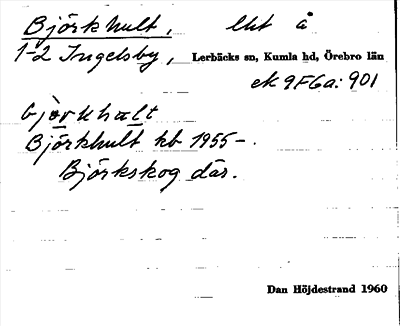 Björkhult, lht å
1-2 Ingelsby, Lerbäcks sn, Kumla hd, Örebro län
ek 9F6a: 901
Björkhult kb 1955-.
Björkskog där.
Dan Höjdestrand 1960